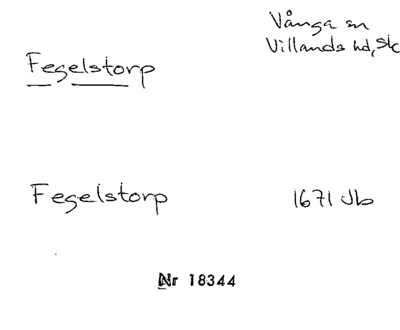 Vånga sn
Villands hd, Sk
Fegelstorp
Fegelstorp
1671 Jb
Nr 18344